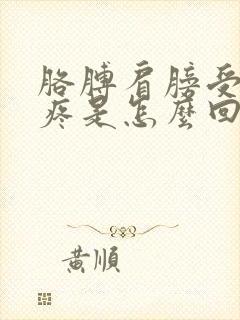 胳膊肩膀受
疼是怎麽回
黃順